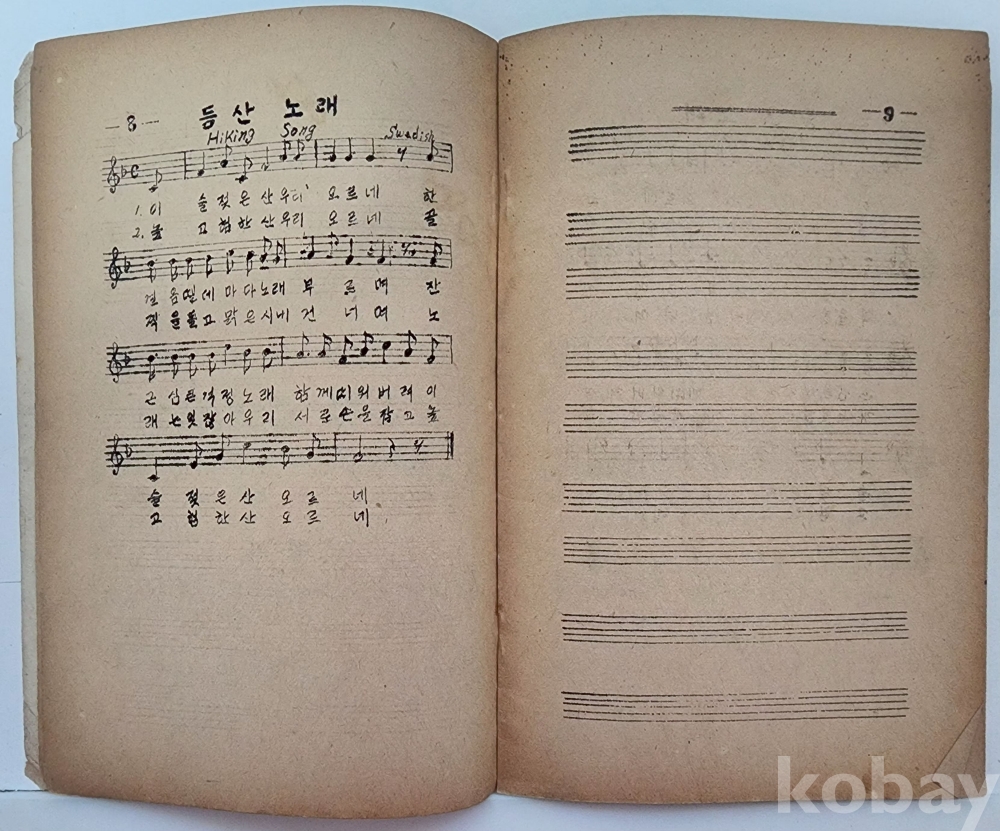 — 8 —
등산 노래
Hiking Song
Swedish
1. 이 슬젖은산우리 오르네 한
2. 높 고험한산우리 오르네 괄
걸음 마다노래 부르며 잔
맑은시내 건너며 노
근심 걱정노래 함께 버려이
래 아우리 서로손을잡고높
슬젖은산오르네
고험한산오르네
— 9 —
kobay